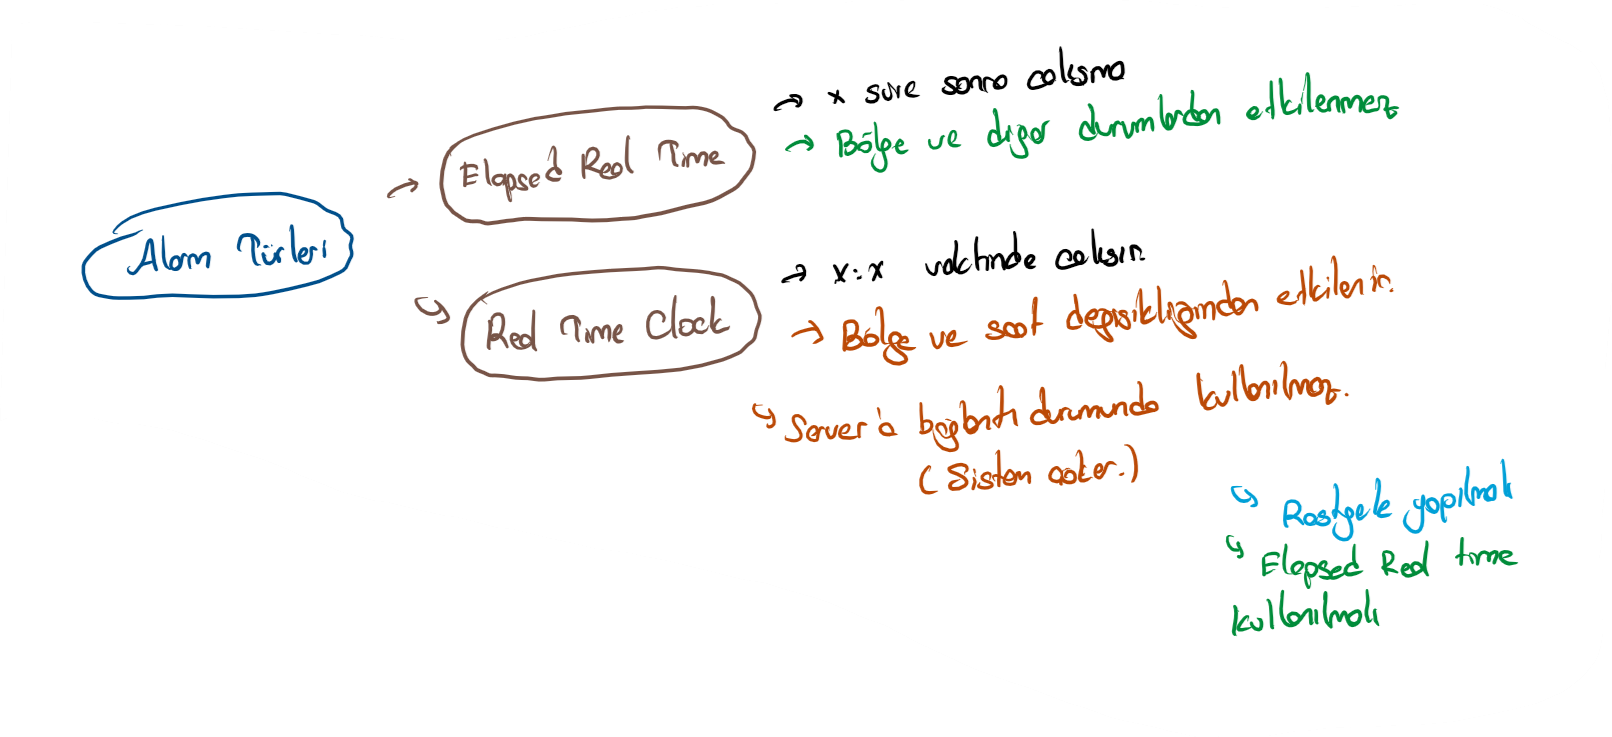 Alarm Türleri
Elapsed Real Time
x süre sonra calısma
Bölge ve diğer durumlardan etkilenmez
Real Time Clock
x:x vaktinde calıssın
Bölge ve saat değişikliğinden etkilenir.
Server'a bağlantı durumunda kullanılmaz.
(Sistem çöker.)
Rastgele yapılmalı
Elapsed Real time
kullanılmalı